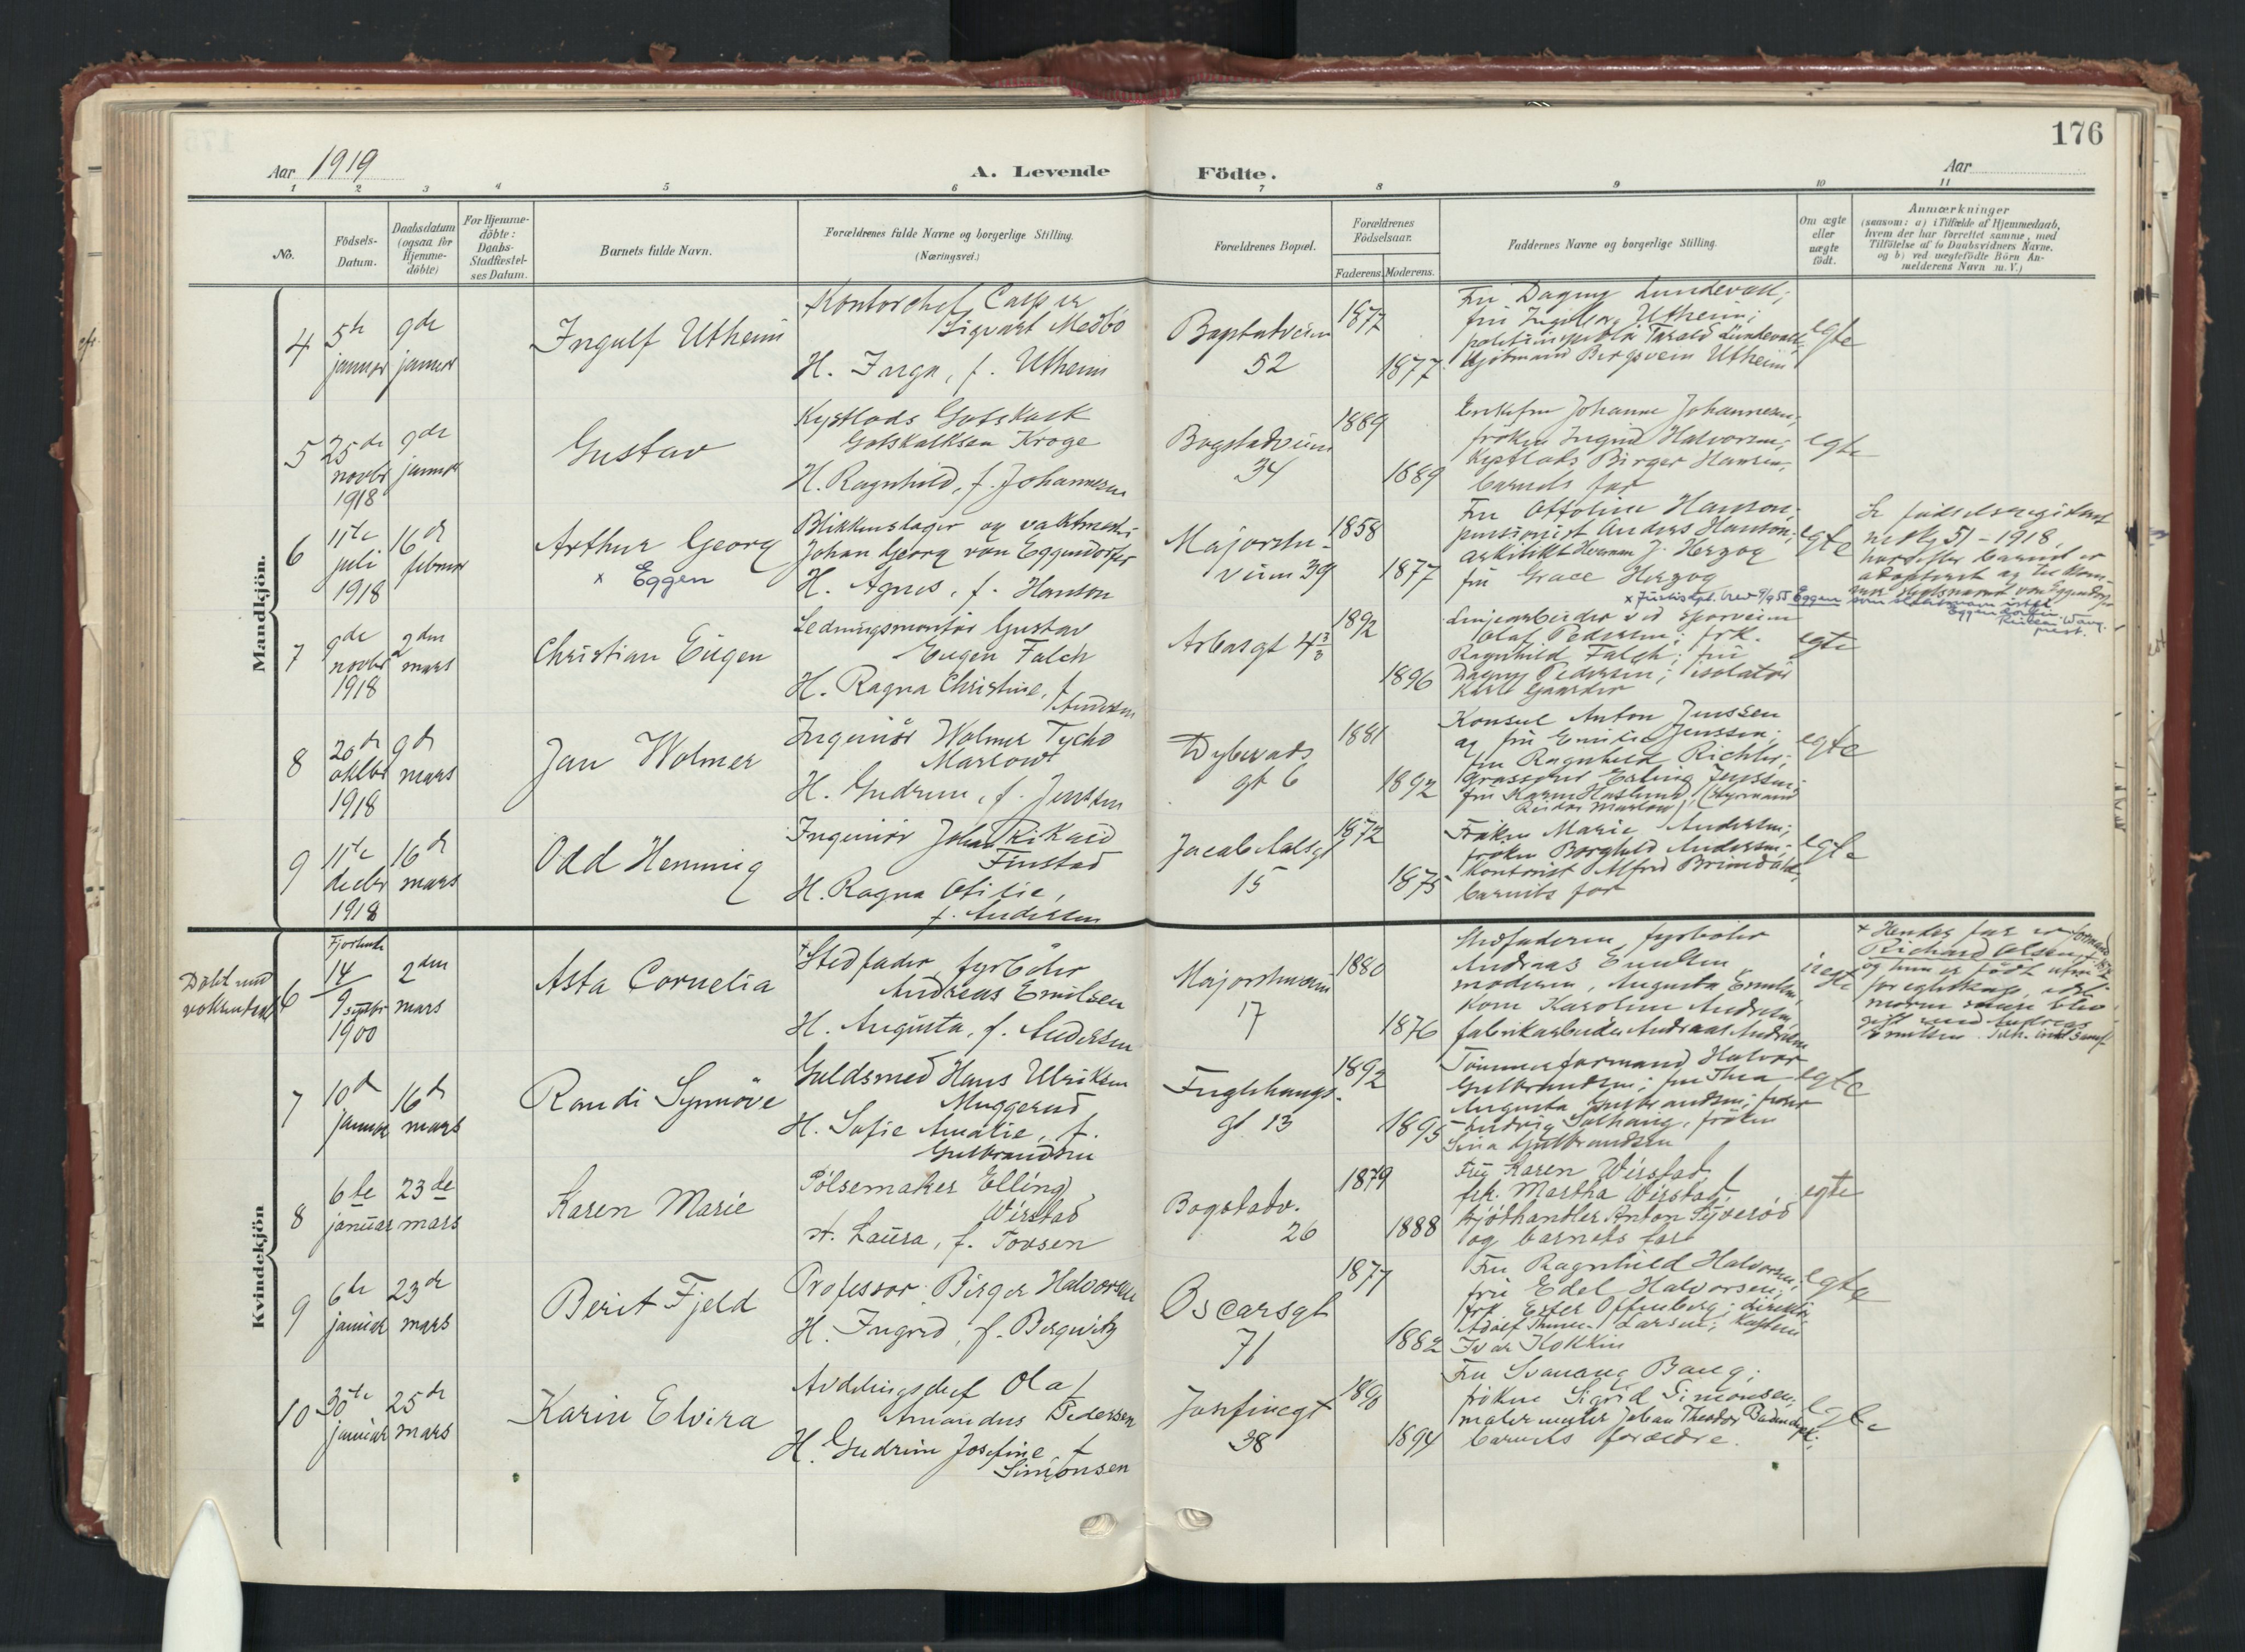 176
Aar 1919
A. Levende Födte.
Aar
1 2 3 4 5 6 7 8 9 10 11
No.
Födsels-Datum.
Daabsdatum (ogsaa for Hjemme-döbte)
For Hjemme-döbte: Daabs-Stadfæstel-ses Datum.
Barnets fulde Navn.
Forældrenes fulde Navne og borgerlige Stilling.
(Næringsvei.)
Forældrenes Bopæl.
Forældrenes Födselsaar.
Faderens. Moderens.
Faddernes Navne og borgerlige Stilling.
Om ægte eller uægte födt.
Anmærkninger
(saasom: a) i Tilfælde af Hjemmedaab,
hvem der har forrettet samme, med
Tilföielse af to Daabsvidners Navne,
og b) ved uægtefödte Börn An-
melderens Navn m. V.)
Mandkjön.
4
5te januar
9de januar
Ingulf Utheim
Kontorchef Casper
Sigvart Medbö
H. Inga, f. Utheim
52
1877
1877
Fru Dagny Lundevall,
fru Ingeborg Utheim;
Tarald Lundevall;
Bergsvein Utheim
egte
5
25de novbr 1918
9de januar
Gustav
Kystlods Gotskalk
Gotskalksen Kroge
H. Ragnhild, f. Johannesen
Bogstadveien
34
1889
1889
Enkefru Johanne Johannesen,
fröken Ingrid Halvorsen;
Kystlods Birger Hansen,
barnets far
egte
6
11te juli 1918
16de februar
Arthur Georg
x Eggen
Blikkenslager og vaktmester
Johan Georg von Eggendorfer
H. Agnes, f. Hanson
Majorstu-
veien 39
1858
1877
Fru Ottoline Hanson;
pensionist Anders Hanson;
arkitekt Herman J. Herzog
fru Grace Herzog
egte
Se födselsregistret
51 - 1918,
barnet er
adoptert og
x Justisdpt. brev 9/9 55 Eggen som slektsnavn istf.
Eggendorfer
prest.
7
9de novbr 1918
2den mars
Christian Eugen
Ledningsmontör Gustav
Eugen Falch
H. Ragna Christine, f.
Andersen
1892
1896
Linjearbeider ved Sporveien
Olaf Pedersen; frk.
Ragnhild Falch; fru
Dagny Pedersen; isolatör
Karl Gaarder
egte
8
20de oktbr 1918
9de mars
Jan Wolmer
Ingeniör Wolmer Tycho
Marlow
H. Gudrun, f. Jenssen
Dybwads
gt 6
1881
1892
Konsul Anton Jenssen
og fru Emilie Jenssen;
fru Ragnhild Richter;
grosserer Erling Jenssen;
fru Karen Haslund; (styrmand
Reidar Marlow)
egte
9
11te decbr 1918
16de mars
Odd Henning
Ingeniör Johan Rikard
Finstad
H. Ragna Otilie,
f. Andersen
Jacob Aalsgt
15
1872
1875
Fröken Marie Andersen;
fröken Borghild Andersen;
Kontorist Alfred
barnets far
egte
Kvindekjön
Döbt ved
voksendaab
6
Fjortende
14/9 septbr 1900
2den mars
Asta Cornelia
x Stedfader fyrböter
Andreas Emilsen
H. Augusta, f. Andersen
Majorstuveien
17
1880
1876
Stedfaderen, fyrböter
Andreas Emilsen
moderen, Augusta Emilsen,
Kone Karoline Andersen
fabrikarbeider Andreas Andersen
uegte
x Hendes far er formand
Richard Olsen,
og hun er födt uten
for egteskap, idet
moren senere blev
gift med Andreas
Emilsen.
7
10de januar
16de mars
Randi Synnöve
Guldsmed Hans Ulriksen
Muggerud
H. Sofie Amalie, f.
Gulbrandsen
Fuglehaugs-
gt 13
1892
1895
Tömmerformand Halvor
Gulbrandsen; fru Thea
Augusta Gulbrandsen;
Ludvig Solhaug, fröken
Gulbrandsen
egte
8
6te januar
23de mars
Karen Marie
Pölsemaker Elling
Wirstad
H. Laura, f. Tovsen
Bogstadv.
26
1879
1888
Fru Karen Wirstad,
frk. Martha Wirstad,
kjöthandler Anton Syveröd
og barnets far
egte
9
6te januar
23de mars
Berit Fjeld
Professor Birger Halvorsen
H. Ingrid, f. Bergwitz
Oscarsgt
71
1877
1882
Fru Ragnhild Halvorsen;
fru Edel Halvorsen;
frk. Ester Offenberg; direktör
Adolf Larsen; kaptein
Ivar
egte
10
30te januar
25de mars
Karin Elvira
Avdelingschef Olaf
Amandus Pedersen
H. Gudrun Josefine, f.
Simonsen
Josefinegt
38
1890
1894
Fru Svanaug Bang;
fröken Sigrid Simonsen,
malermester Johan Theodor
barnets forældre.
egte